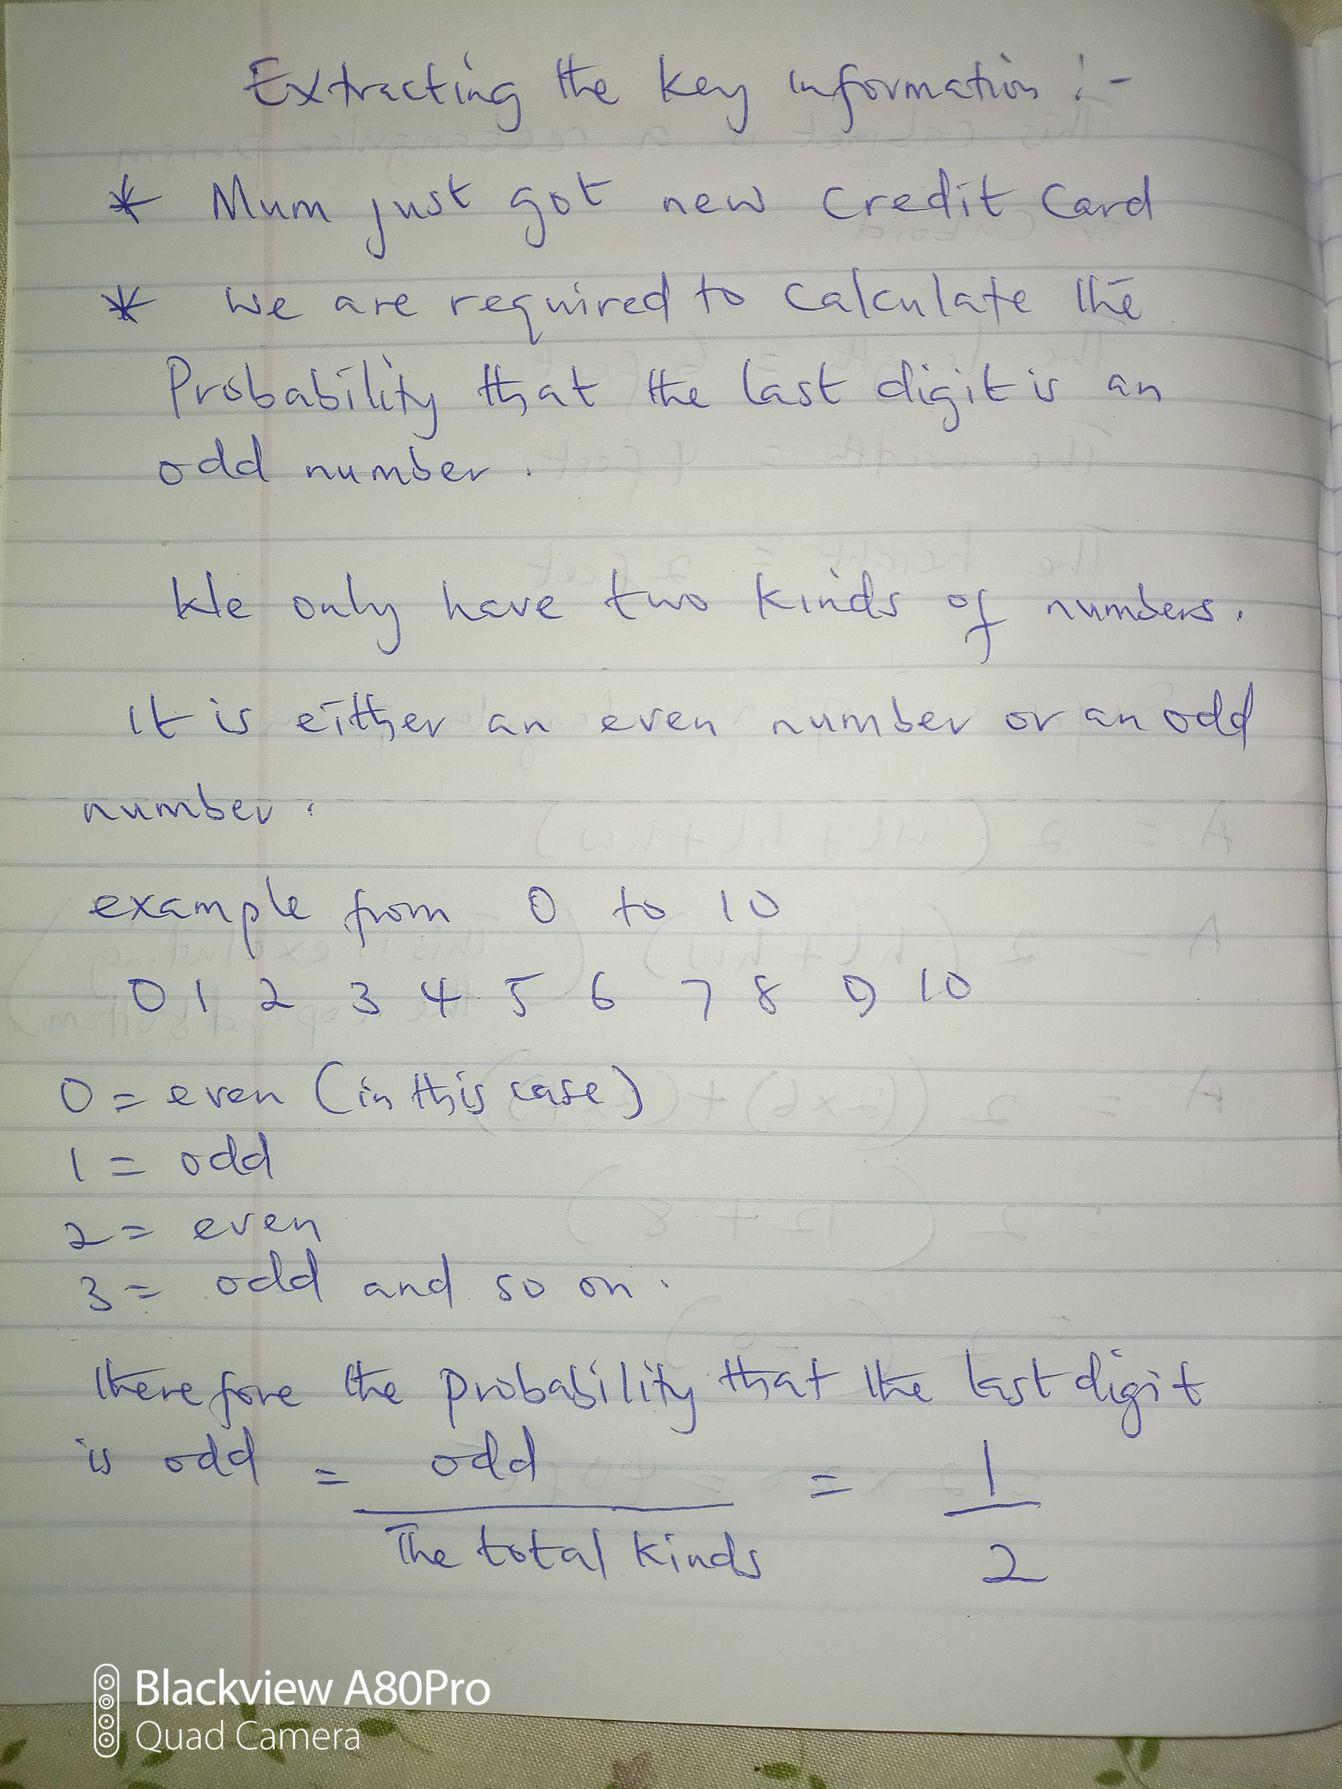 Extracting the key information :-
* Mum just got new credit card
* we are required to calculate the
Probability that the last digit is an
odd number.
We only have two kinds of numbers.
It is either an even number or an odd
number.
example from 0 to 10
0 1 2 3 4 5 6 7 8 9 10
0 = even (in this case)
1 = odd
2 = even
3 = odd and so on.
therefore the probability that the last digit
is odd = odd / The total kinds = 1 / 2
Blackview A80Pro
Quad Camera